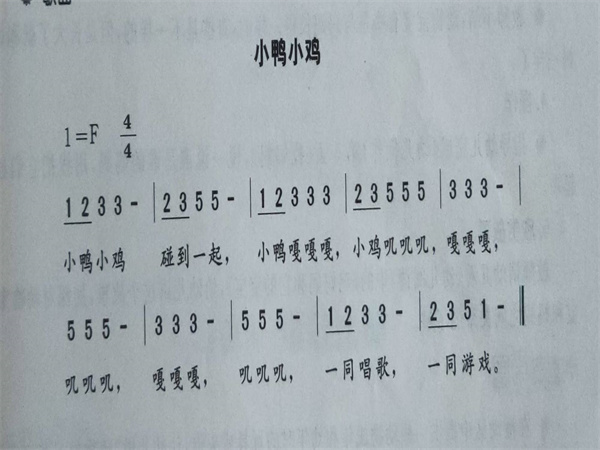 小鸭小鸡
1=F 4/4
1 2 3 3 - | 2 3 5 5 - | 1 2 3 3 3 | 2 3 5 5 5 | 3 3 3 - |
小鸭小鸡 碰到一起， 小鸭嘎嘎嘎， 小鸡叽叽叽， 嘎嘎嘎，
5 5 5 - | 3 3 3 - | 5 5 5 - | 1 2 3 3 - | 2 3 5 1 - ‖
叽叽叽， 嘎嘎嘎， 叽叽叽， 一同唱歌， 一同游戏。